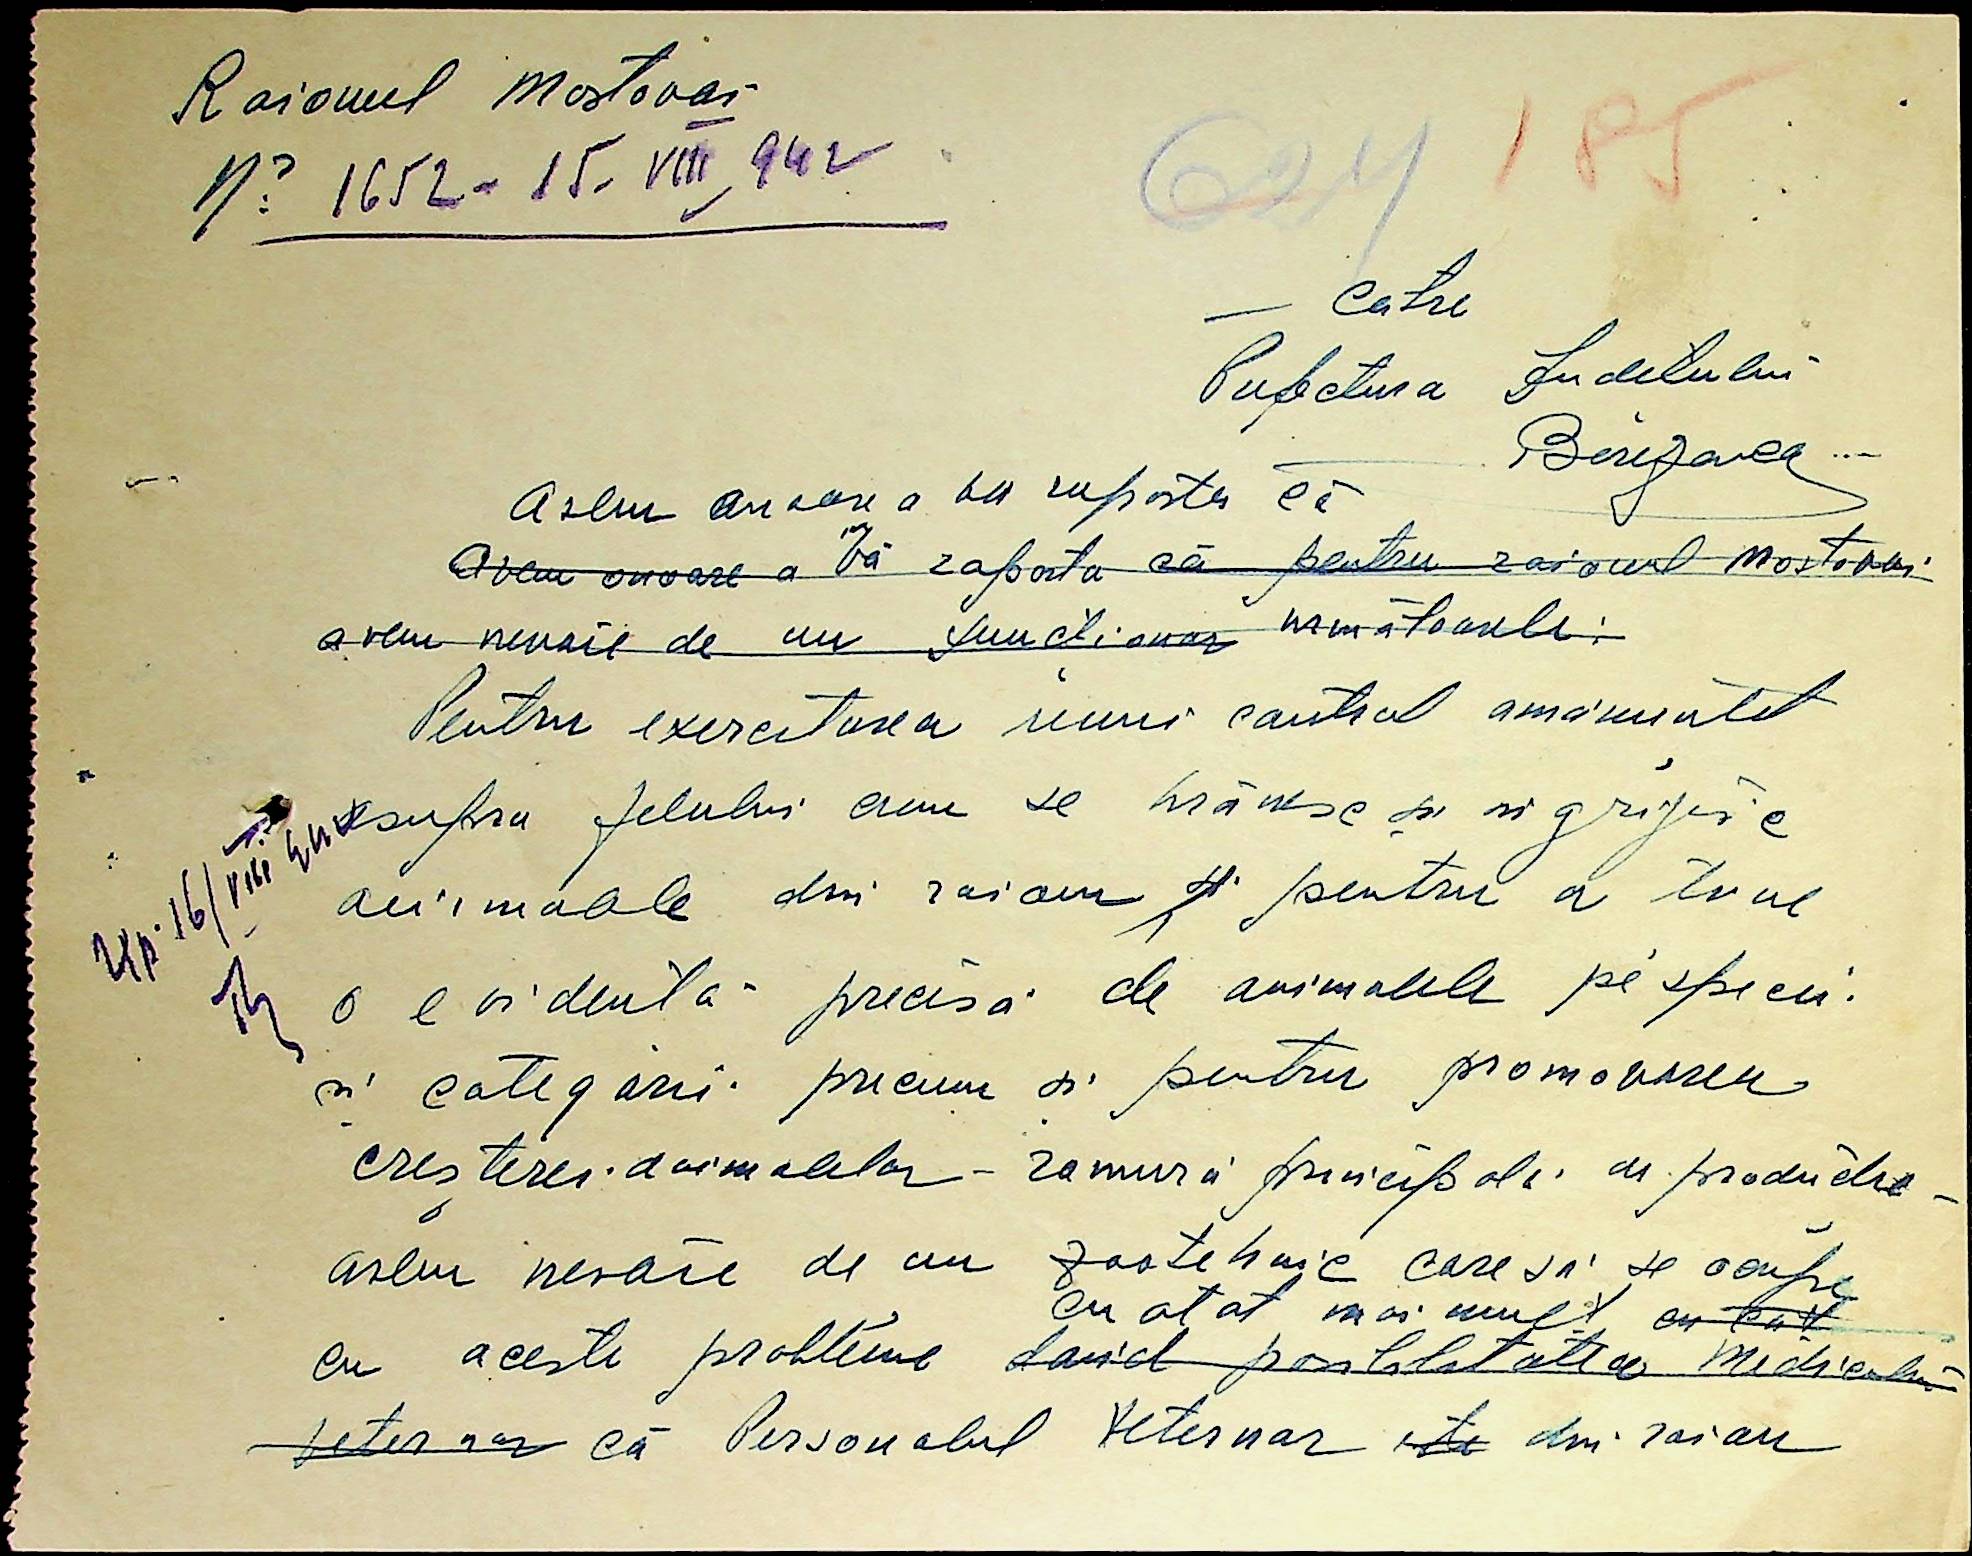 Raionul Mostovoi
Nº 1652 - 15. VIII 942
624 185
– Catre
Prefectura Judetului
Berezovca
Avem onoare a va raporta că
Avem onoare a Vă raporta că pentru raionul Mostovoi
avem nevoie de un functionar următoarele:
Pentru exercitarea unui control amănunțit
asupra felului cum se hrănesc și se grijesc
animalele din raion și pentru a tine
o evidentă precisă de animalele pe specii
si categorii precum si pentru promovarea
creșterei animalelor – ramură principală de producție –
avem nevoie de un zootehnic care să se ocupe
cu atat mai mult cu cât
cu aceste probleme dând posibilitatea Medicului
Veternar că Personalul Veternar din raion
16/VIII 942